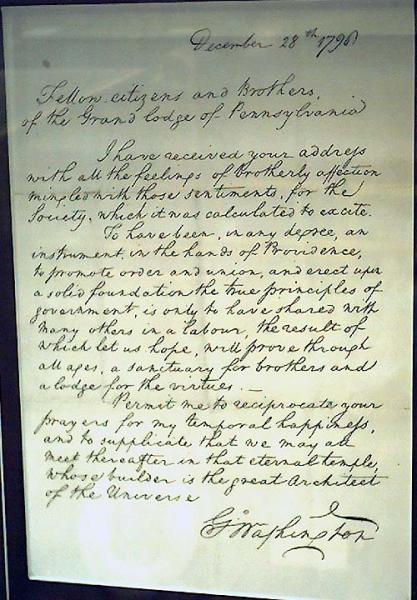 December 28th 1796
Fellow-citizens and Brothers,
of the Grand lodge of Pennsylvania
I have received your address
with all the feelings of Brotherly affection
mingled with those sentiments, for the
Society, which it was calculated to excite.
To have been, in any degree, an
instrument, in the hands of Providence,
to promote order and union, and erect upon
a solid foundation the true principles of
government, is only to have shared with
many others in a labour, the result of
which let us hope, will prove through
all ages, a sanctuary for brothers and
a lodge for the virtues. —
Permit me to reciprocate your
prayers for my temporal happiness,
and to supplicate that we may all
meet thereafter in that eternal temple,
whose builder is the great Architect
of the Universe
Go Washington